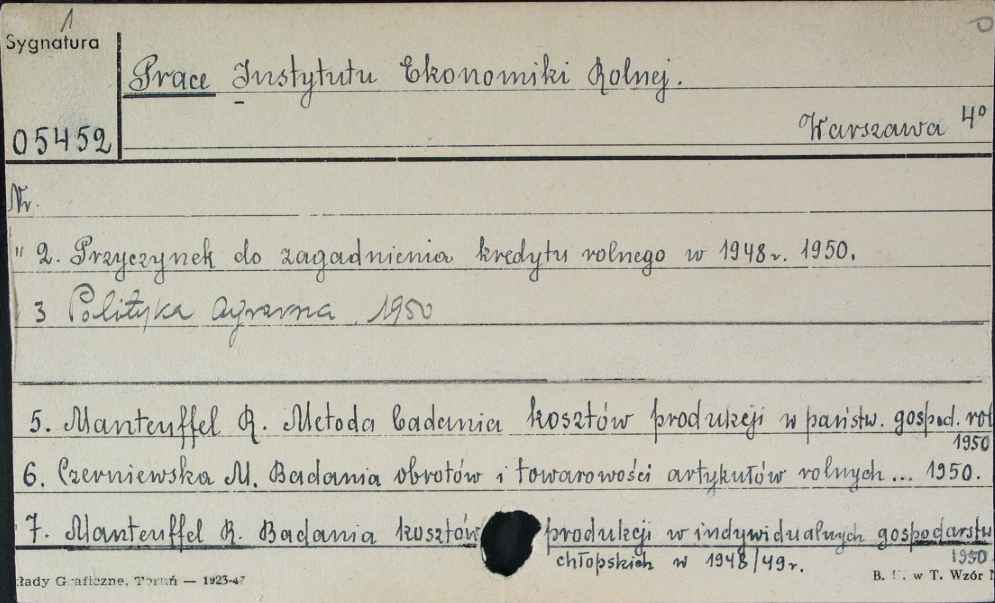 1
Sygnatura
Prace Instytutu Ekonomiki Rolnej.
05452
Warszawa 4°
Nr.
" 2. Przyczynek do zagadnienia kredytu rolnego w 1948 r. 1950.
3 Polityka Agrarna 1950
5. Manteuffel R. Metoda badania kosztów produkcji w państw. gospod. rol
1950
6. Czerniewska M. Badania obrotów i towarowości artykułów rolnych ... 1950.
7. Manteuffel R. Badania kosztów produkcji w indywidualnych gospodarstw
chłopskich w 1948/49 r. 1950
łady Graficzne, Toruń — 1923-47
B. U. w T. Wzór